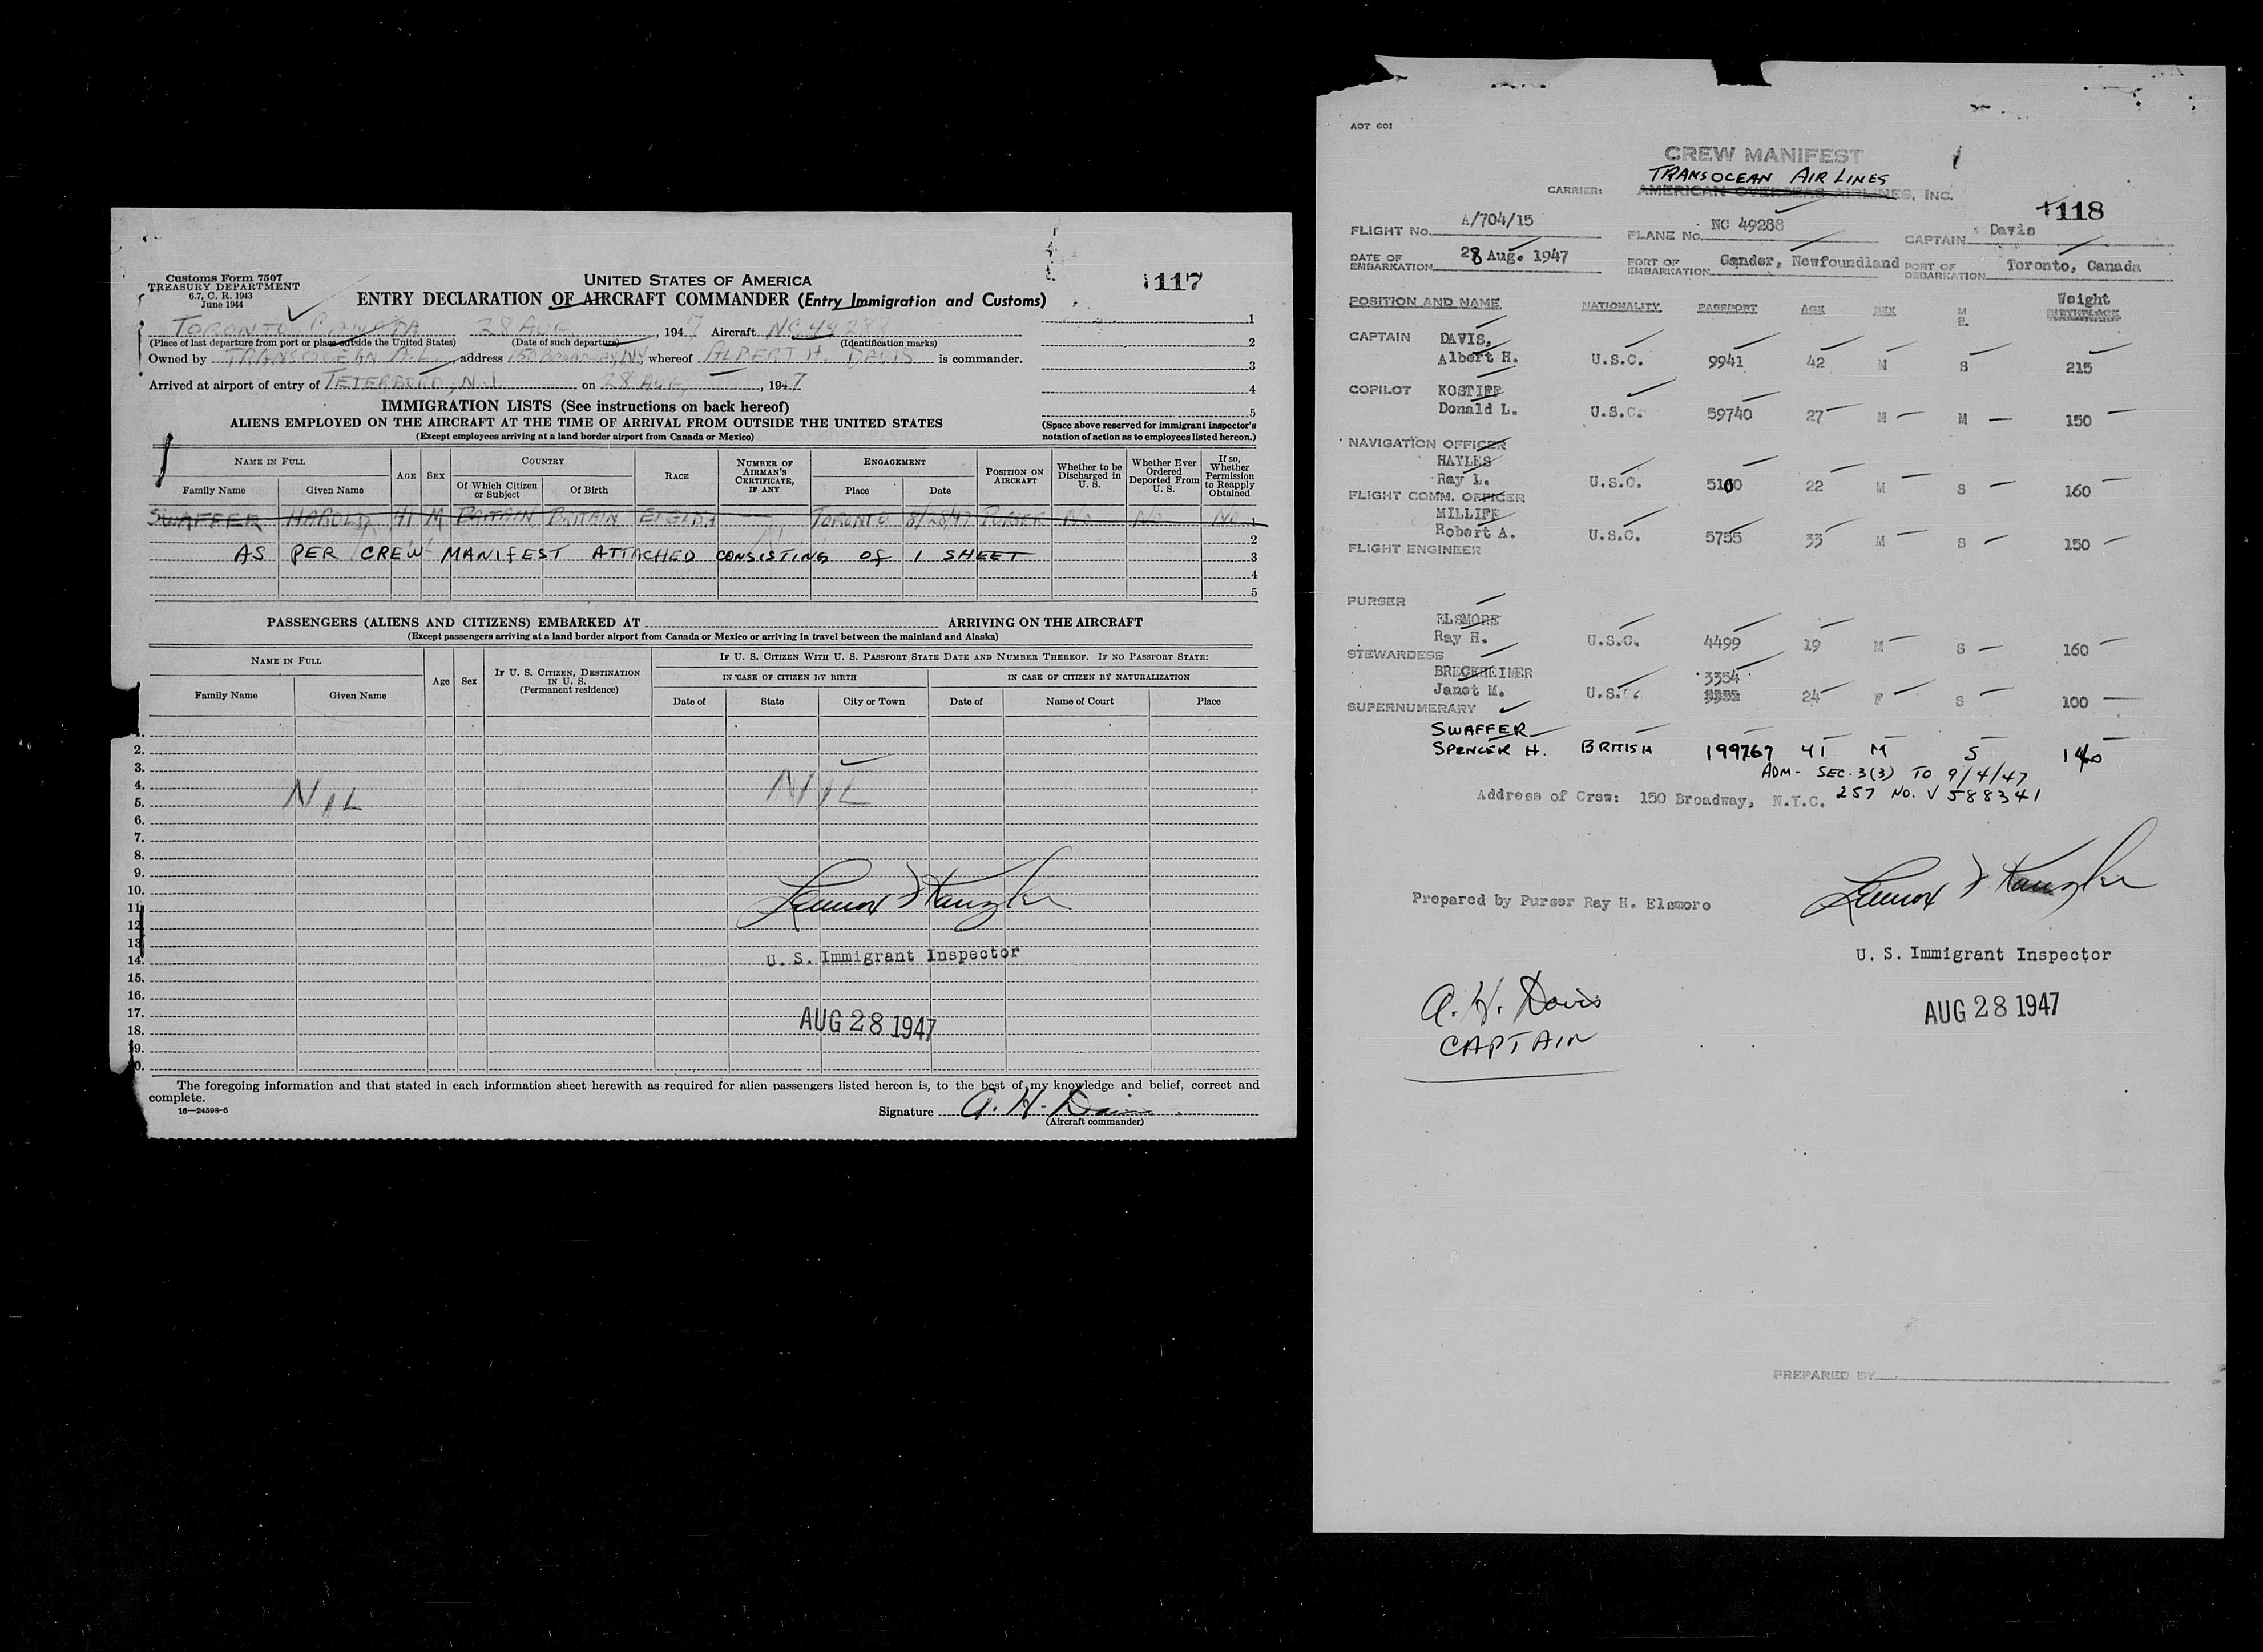 Customs Form 7507
TREASURY DEPARTMENT
6.7, C. R. 1943
June 1944
UNITED STATES OF AMERICA
ENTRY DECLARATION OF AIRCRAFT COMMANDER (Entry Immigration and Customs)
117
TORONTO, CANADA 28 AUG, 1947 Aircraft NC 49288
(Place of last departure from port or place outside the United States) (Date of such departure) (Identification marks)
Owned by TRANSOCEAN A.L., address 150 Broadway, NY, whereof ALBERT H. DAVIS is commander.
Arrived at airport of entry of TETERBORO, N.J. on 28 AUG, 1947
1
2
3
4
5
(Space above reserved for immigrant inspector's notation of action as to employees listed hereon.)
IMMIGRATION LISTS (See instructions on back hereof)
ALIENS EMPLOYED ON THE AIRCRAFT AT THE TIME OF ARRIVAL FROM OUTSIDE THE UNITED STATES
(Except employees arriving at a land border airport from Canada or Mexico)
NAME IN FULL
Family Name Given Name
AGE SEX
COUNTRY
Of Which Citizen or Subject Of Birth
RACE
NUMBER OF AIRMAN'S CERTIFICATE, IF ANY
ENGAGEMENT
Place Date
POSITION ON AIRCRAFT
Whether to be Discharged in U. S.
Whether Ever Ordered Deported From U. S.
If so, Whether Permission to Reapply Obtained
SWAFFER HAROLD 41 M BRITAIN BRITAIN ENGLISH TORONTO 8/28/47 PURSER No No No 1
2
AS PER CREW MANIFEST ATTACHED CONSISTING OF 1 SHEET 3
4
5
PASSENGERS (ALIENS AND CITIZENS) EMBARKED AT ARRIVING ON THE AIRCRAFT
(Except passengers arriving at a land border airport from Canada or Mexico or arriving in travel between the mainland and Alaska)
NAME IN FULL
Family Name Given Name
Age Sex
IF U. S. CITIZEN, DESTINATION IN U. S. (Permanent residence)
IF U. S. CITIZEN WITH U. S. PASSPORT STATE DATE AND NUMBER THEREOF. IF NO PASSPORT STATE:
IN CASE OF CITIZEN BY BIRTH IN CASE OF CITIZEN BY NATURALIZATION
Date of State City or Town Date of Name of Court Place
1.
2.
3.
4. NIL NIL
5.
6.
7.
8.
9.
10.
11.
12.
13.
14. U. S. Immigrant Inspector
15.
16.
17. AUG 28 1947
18.
19.
20.
The foregoing information and that stated in each information sheet herewith as required for alien passengers listed hereon is, to the best of my knowledge and belief, correct and
complete.
16—24598-5
Signature A. H. Davis
(Aircraft commander)
AOT 601
CREW MANIFEST
TRANSOCEAN AIR LINES
CARRIER: AMERICAN OVERSEAS AIRLINES, INC.
118
FLIGHT No. A/704/15 PLANE No. NC 49288 CAPTAIN Davis
DATE OF EMBARKATION 28 Aug. 1947 PORT OF EMBARKATION Gander, Newfoundland PORT OF DEBARKATION Toronto, Canada
POSITION AND NAME NATIONALITY PASSPORT AGE SEX M S. Weight
CAPTAIN DAVIS,
Albert H. U.S.C. 9941 42 M S 215
COPILOT KOSTIFF
Donald L. U.S.C. 59740 27 M M 150
NAVIGATION OFFICER
HAYLES
Ray L. U.S.C. 5160 22 M S 160
FLIGHT COMM. OFFICER
MILLIFF
Robert A. U.S.C. 5755 33 M S 150
FLIGHT ENGINEER
PURSER
ELSMORE
Ray H. U.S.C. 4499 19 M S 160
STEWARDESS
BRECKHEIMER 3354
Janet M. U.S.C. 24 F S 100
SUPERNUMERARY
SWAFFER
SPENCER H. BRITISH 199767 41 M S 140
ADM- SEC. 3(3) TO 9/4/47
Address of Crew: 150 Broadway, N.Y.C. 257 No. V 588341
Prepared by Purser Ray H. Elsmore
U. S. Immigrant Inspector
A. H. Davis
CAPTAIN
AUG 28 1947
PREPARED BY